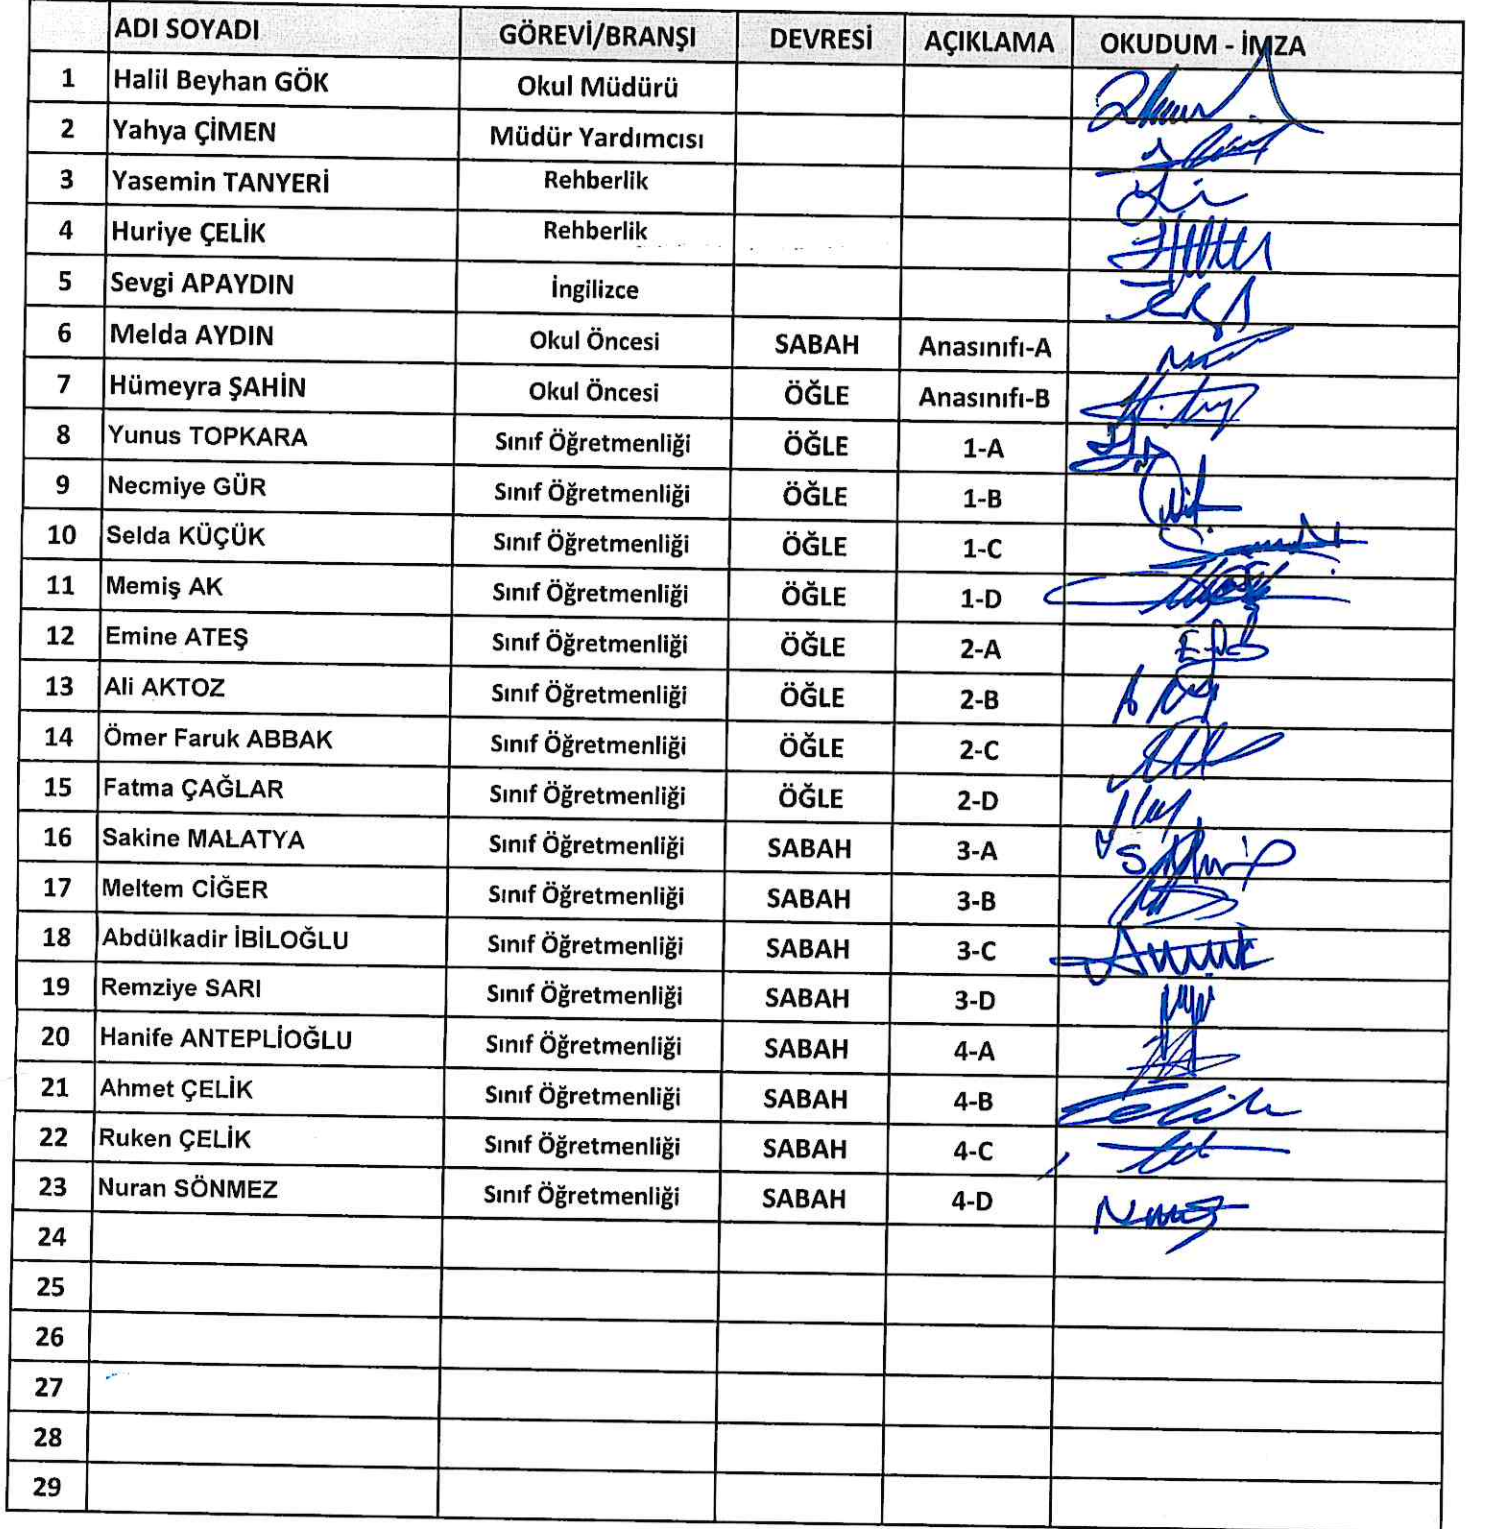 ADI SOYADI GÖREVİ/BRANŞI DEVRESİ AÇIKLAMA OKUDUM - İMZA
1 Halil Beyhan GÖK Okul Müdürü
2 Yahya ÇİMEN Müdür Yardımcısı
3 Yasemin TANYERİ Rehberlik
4 Huriye ÇELİK Rehberlik
5 Sevgi APAYDIN İngilizce
6 Melda AYDIN Okul Öncesi SABAH Anasınıfı-A
7 Hümeyra ŞAHİN Okul Öncesi ÖĞLE Anasınıfı-B
8 Yunus TOPKARA Sınıf Öğretmenliği ÖĞLE 1-A
9 Necmiye GÜR Sınıf Öğretmenliği ÖĞLE 1-B
10 Selda KÜÇÜK Sınıf Öğretmenliği ÖĞLE 1-C
11 Memiş AK Sınıf Öğretmenliği ÖĞLE 1-D
12 Emine ATEŞ Sınıf Öğretmenliği ÖĞLE 2-A
13 Ali AKTOZ Sınıf Öğretmenliği ÖĞLE 2-B
14 Ömer Faruk ABBAK Sınıf Öğretmenliği ÖĞLE 2-C
15 Fatma ÇAĞLAR Sınıf Öğretmenliği ÖĞLE 2-D
16 Sakine MALATYA Sınıf Öğretmenliği SABAH 3-A
17 Meltem CİĞER Sınıf Öğretmenliği SABAH 3-B
18 Abdülkadir İBİLOĞLU Sınıf Öğretmenliği SABAH 3-C
19 Remziye SARI Sınıf Öğretmenliği SABAH 3-D
20 Hanife ANTEPLİOĞLU Sınıf Öğretmenliği SABAH 4-A
21 Ahmet ÇELİK Sınıf Öğretmenliği SABAH 4-B
22 Ruken ÇELİK Sınıf Öğretmenliği SABAH 4-C
23 Nuran SÖNMEZ Sınıf Öğretmenliği SABAH 4-D
24
25
26
27
28
29